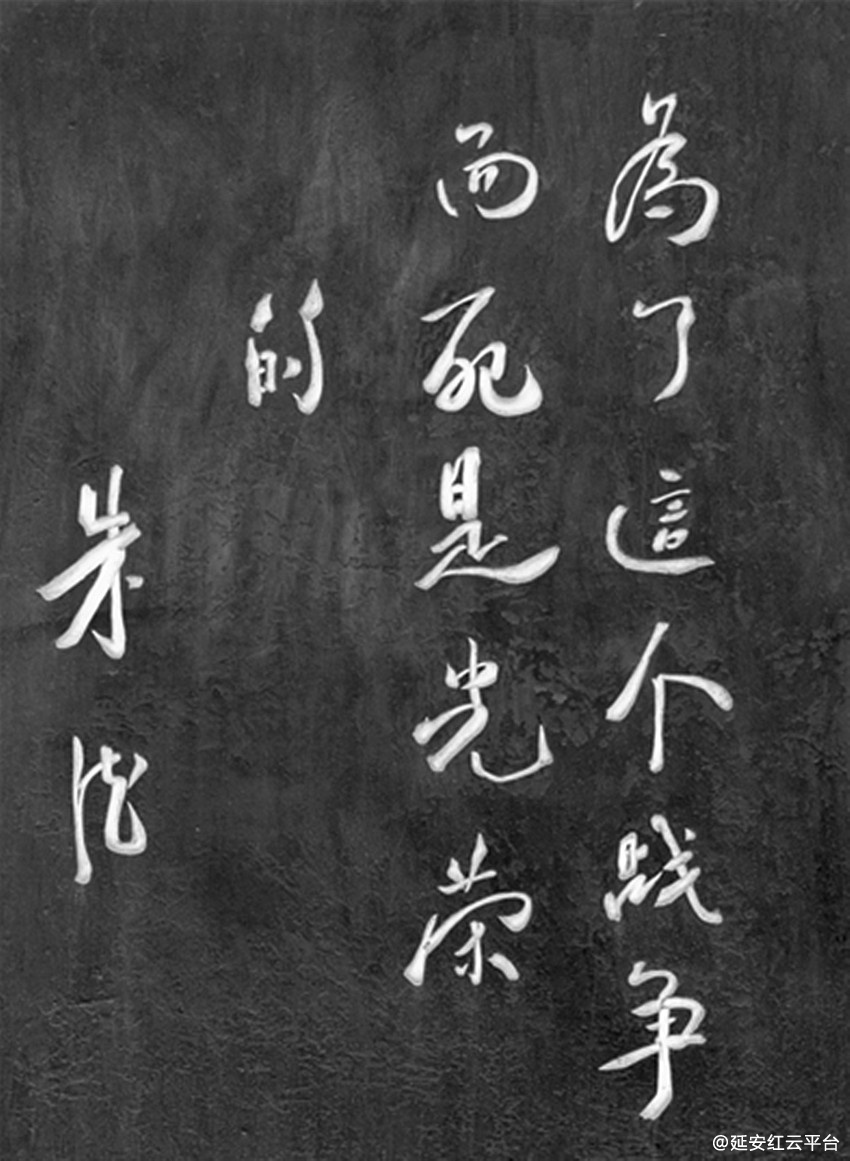 為了這个战争
而死是光荣
的
朱德
@延安红云平台